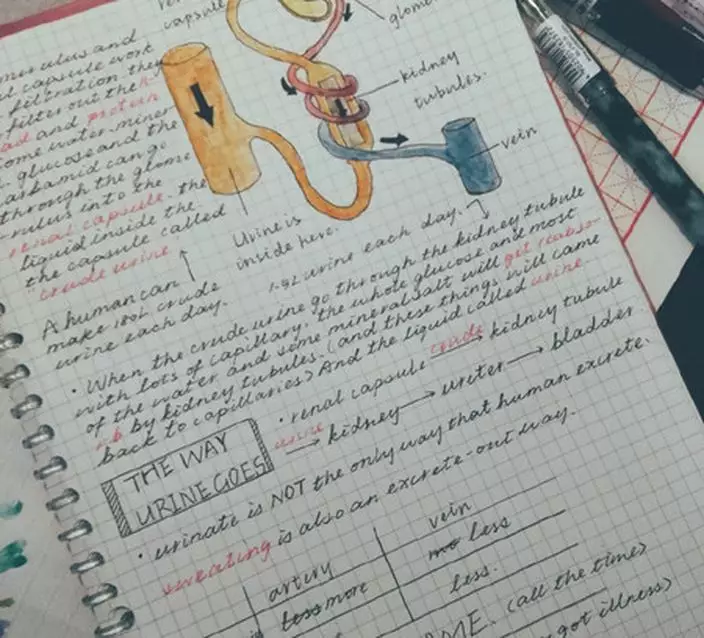 capsule
glome
ulus and
capsule work
filtration. they
filter out the
and protein
some water, miner
glucose and the
can go
through the glome
rulus into the
renal capsule. the
liquid inside the
the capsule called
"crude urine"
kidney
tubules.
vein
Urine is
inside here.
A human can
make 180L crude
urine each day.
1.5L urine each day.
· When the crude urine go through the kidney tubule
with lots of capillary. the whole glucose and most
of the water and some mineral salt will get reabso-
rb by kidney tubules. (and these things will came
back to capillaries) And the liquid called urine.
THE WAY
URINE GOES
· renal capsule crude kidney tubule
urine kidney ureter bladder
· urinate is NOT the only way that human excrete.
sweating is also an excrete-out way.
artery vein
less more no less
less.
(all the time)
got illness)